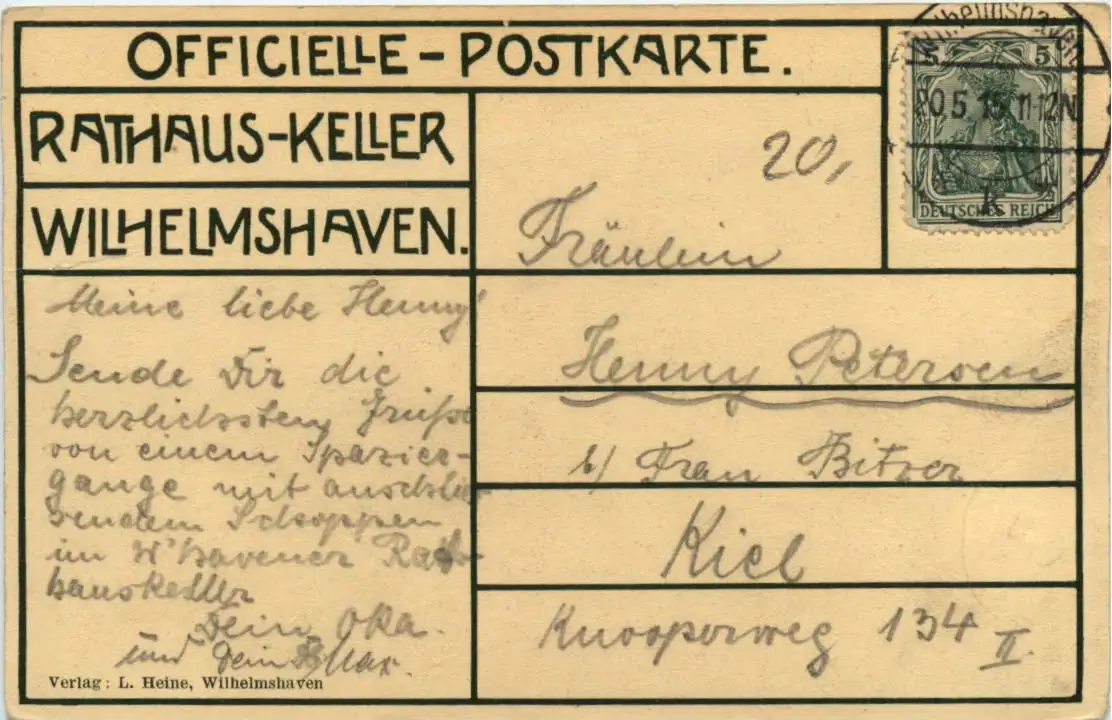 OFFICIELLE-POSTKARTE.
RATHAUS-KELLER
WILHELMSHAVEN.
Wilhelmshaven
20.5.   11-12N
5 5
DEUTSCHES REICH
20,
Fräulein
Henny Petersen
b/ Frau Bitzer
Kiel
Knooperweg 134 II.
Meine liebe Henny!
Sende Dir die
herzlichsten Grüße
von einem Spazier-
gange mit anschlie
sendem Schoppen
im W'havener Rat-
hauskeller
Dein Oka.
und Dein Max.
Verlag: L. Heine, Wilhelmshaven